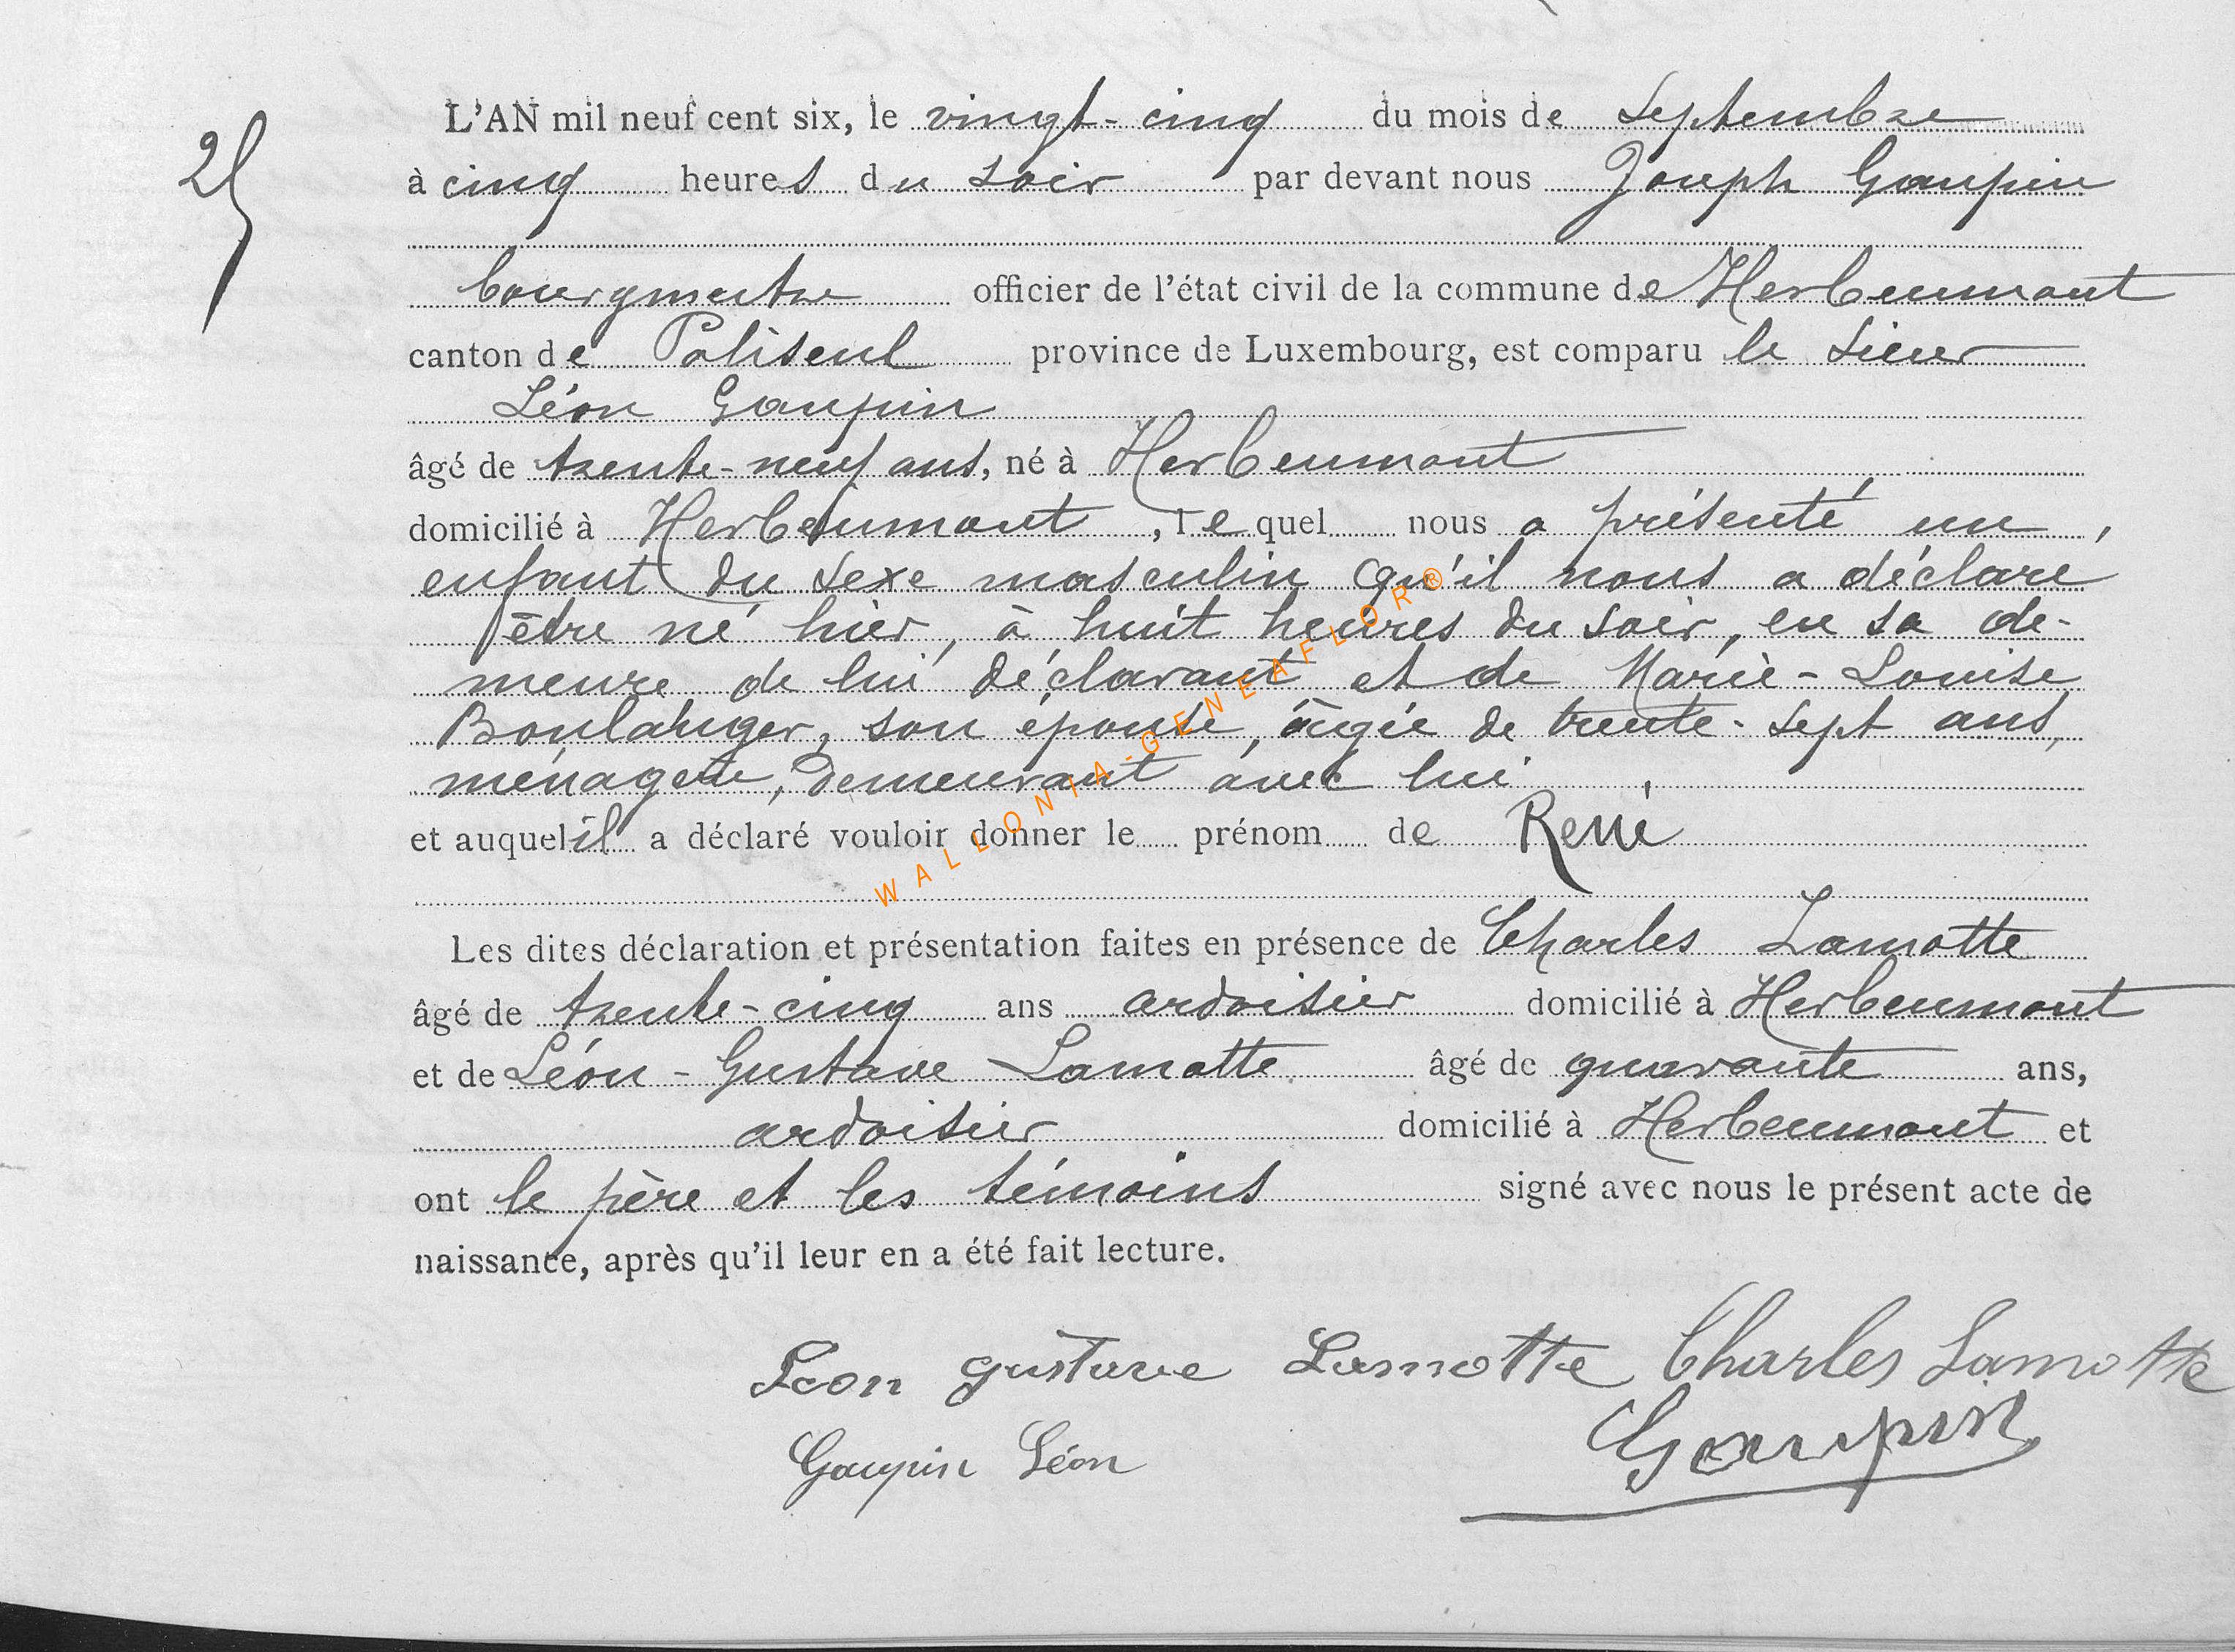 25
L'AN mil neuf cent six, le vingt-cinq du mois de Septembre
à cinq heures du soir par devant nous Joseph Gaupin
bourgmestre officier de l'état civil de la commune de Herbeumont
canton de Paliseul province de Luxembourg, est comparu le sieur
Léon Gaupin
âgé de trente-neuf ans, né à Herbeumont
domicilié à Herbeumont, lequel nous a présenté un
enfant du sexe masculin qu'il nous a déclaré
être né hier, à huit heures du soir, en sa de-
meure, de lui déclarant et de Marie-Louise
Boulanger, son épouse, âgée de trente-sept ans,
ménagère, demeurant avec lui
et auquel il a déclaré vouloir donner le prénom de René
Les dites déclaration et présentation faites en présence de Charles Lamotte
âgé de trente-cinq ans ardoisier domicilié à Herbeumont
et de Léon-Gustave Lamotte âgé de quarante ans,
ardoisier domicilié à Herbeumont et
ont le père et les témoins signé avec nous le présent acte de
naissance, après qu'il leur en a été fait lecture.
Leon gustave Lamotte Charles Lamotte
Gaupin Léon Gaupin
WALLONIA-GENEAFLOR®